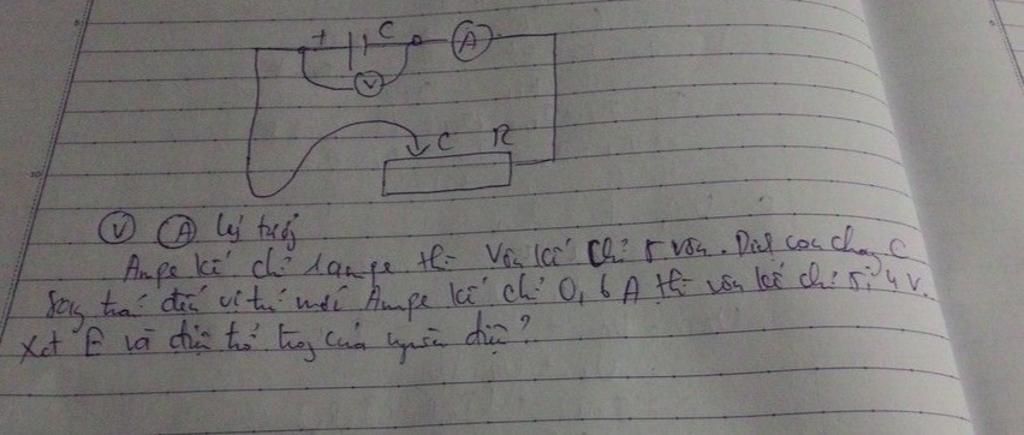 + C A
V
C R
V A lý tưởng
Ampe kế chỉ 1 ampe thì Vôn kế chỉ 5 vôn. Dịch con chạy C
sang trái đến vị trí mới Ampe kế chỉ 0,6 A thì vôn kế chỉ 5,4 V.
Xđ E và điện trở trong của nguồn điện?